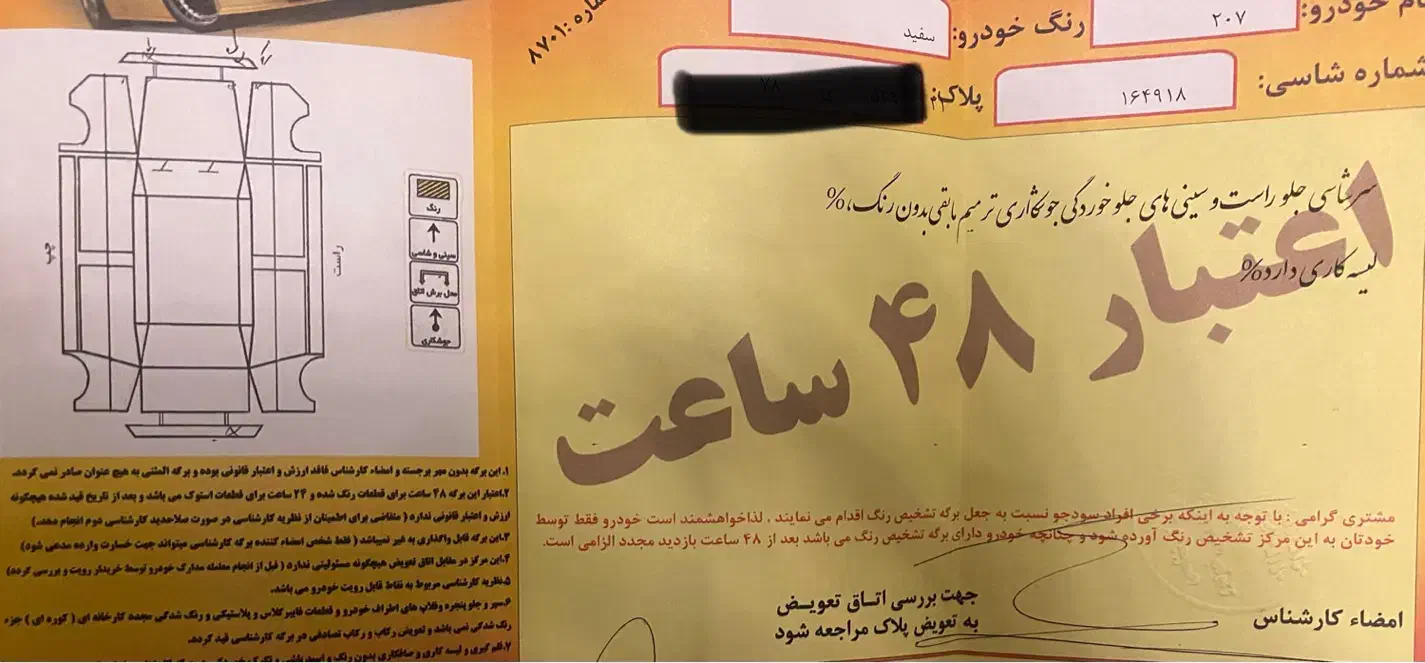 نام خودرو:
۲۰۷
رنگ خودرو:
سفید
شماره: ۸۷۰۱
شماره شاسی:
۱۶۴۹۱۸
پلاک
۷۸
سرشاسی جلو راست و سینی های جلو خوردگی جوشکاری ترمیم مابقی بدون رنگ،%
لیسه کاری دارد%
اعتبار ۴۸ ساعت
رنگ
سینی و شاسی
محل برش اتاق
جوشکاری
چپ
راست
۱.این برگه بدون مهر برجسته و امضاء کارشناس فاقد ارزش و اعتبار قانونی بوده و برگه المثنی به هیچ عنوان صادر نمی گردد.
۲.اعتبار این برگه ۴۸ ساعت برای قطعات رنگ شده و ۲۴ ساعت برای قطعات استوک می باشد و بعد از تاریخ قید شده هیچگونه
ارزش و اعتبار قانونی ندارد ( متقاضی برای اطمینان از نظریه کارشناسی در صورت صلاحدید کارشناسی دوم انجام دهد.)
۳.این برگه قابل واگذاری به غیر نمیباشد ( فقط شخص امضاء کننده برگه کارشناسی میتواند جهت خسارت وارده مدعی شود)
۴.این مرکز در مقابل اتاق تعویض هیچگونه مسئولیتی ندارد ( قبل از انجام معامله مدارک خودرو توسط خریدار رویت و بررسی گردد)
۵.نظریه کارشناسی مربوط به نقاط قابل رویت خودرو می باشد.
۶.سپر و جلو پنجره وقلاپ های اطراف خودرو و قطعات فایبرگلاس و پلاستیکی و رنگ شدگی مجدد کارخانه ای ( کوره ای ) جزء
رنگ شدگی نمی باشد و تعویض رکاب و رکاب تصادفی در برگه کارشناسی قید گردد.
۷.قلم گیری و لیسه کاری و صافکاری بدون رنگ و
مشتری گرامی : با توجه به اینکه برخی افراد سودجو نسبت به جعل برگه تشخیص رنگ اقدام می نمایند ، لذاخواهشمند است خودرو فقط توسط
خودتان به این مرکز تشخیص رنگ آورده شود و چنانچه خودرو دارای برگه تشخیص رنگ می باشد بعد از ۴۸ ساعت بازدید مجدد الزامی است.
جهت بررسی اتـاق تعویـض
به تعویض پلاک مراجعه شود
امضاء کارشناس